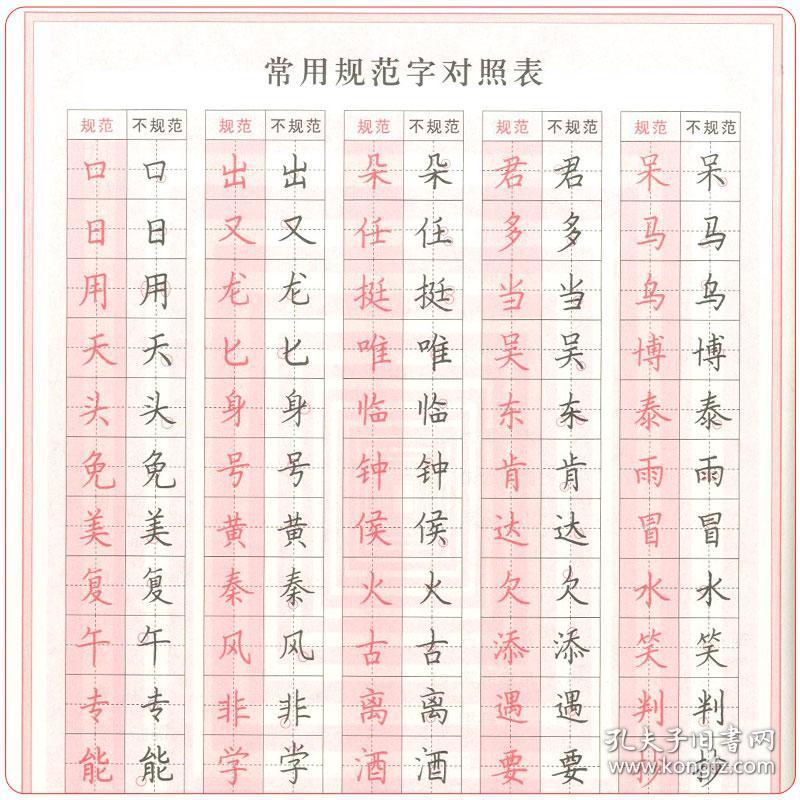 常用规范字对照表
规范 不规范 规范 不规范 规范 不规范 规范 不规范 规范 不规范
口 口 出 出 朵 朵 君 君 呆 呆
日 日 又 又 任 任 多 多 马 马
用 用 龙 龙 挺 挺 当 当 乌 乌
天 天 匕 匕 唯 唯 吴 吴 博 博
头 头 身 身 临 临 东 东 泰 泰
免 免 号 号 钟 钟 肯 肯 雨 雨
美 美 黄 黄 侯 侯 达 达 冒 冒
复 复 秦 秦 火 火 欠 欠 水 水
午 午 风 风 古 古 添 添 笑 笑
专 专 非 非 离 离 遇 遇 判 判
能 能 学 学 酒 酒 要 要 抄 抄
孔夫子旧书网
www.kongfz.com